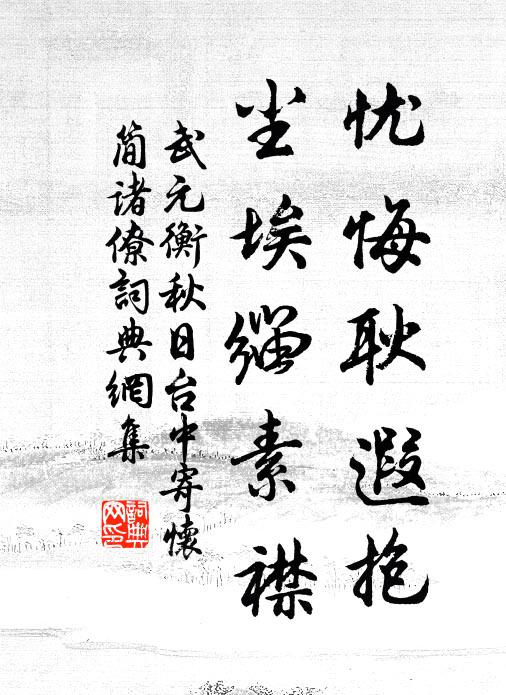 忧悔耿遐抱
尘埃缁素襟
武元衡秋日台中寄懷
简诸僚詞典網集
詞典
网印